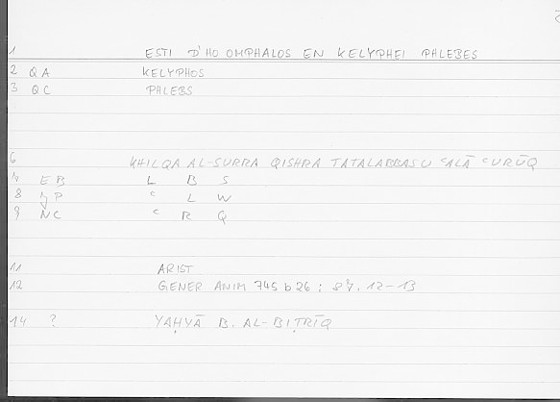 1 ESTI D'HO OMPHALOS EN KELYPHEI PHLEBES
2 QA KELYPHOS
3 QC PHLEBS
6 KHILQA AL-SURRA QISHRA TATALABBASU ʿALĀ ʿURŪQ
7 EB L B S
8 JP ʿ L W
9 NC ʿ R Q
11 ARIST
12 GENER ANIM 745 b 26 : 87, 12-13
14 ? YAḤYĀ B. AL-BIṬRĪQ